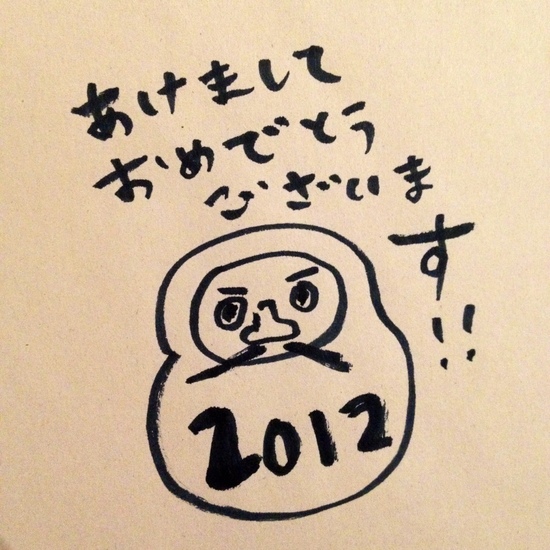 あけまして
おめでとう
ございます!!
2012